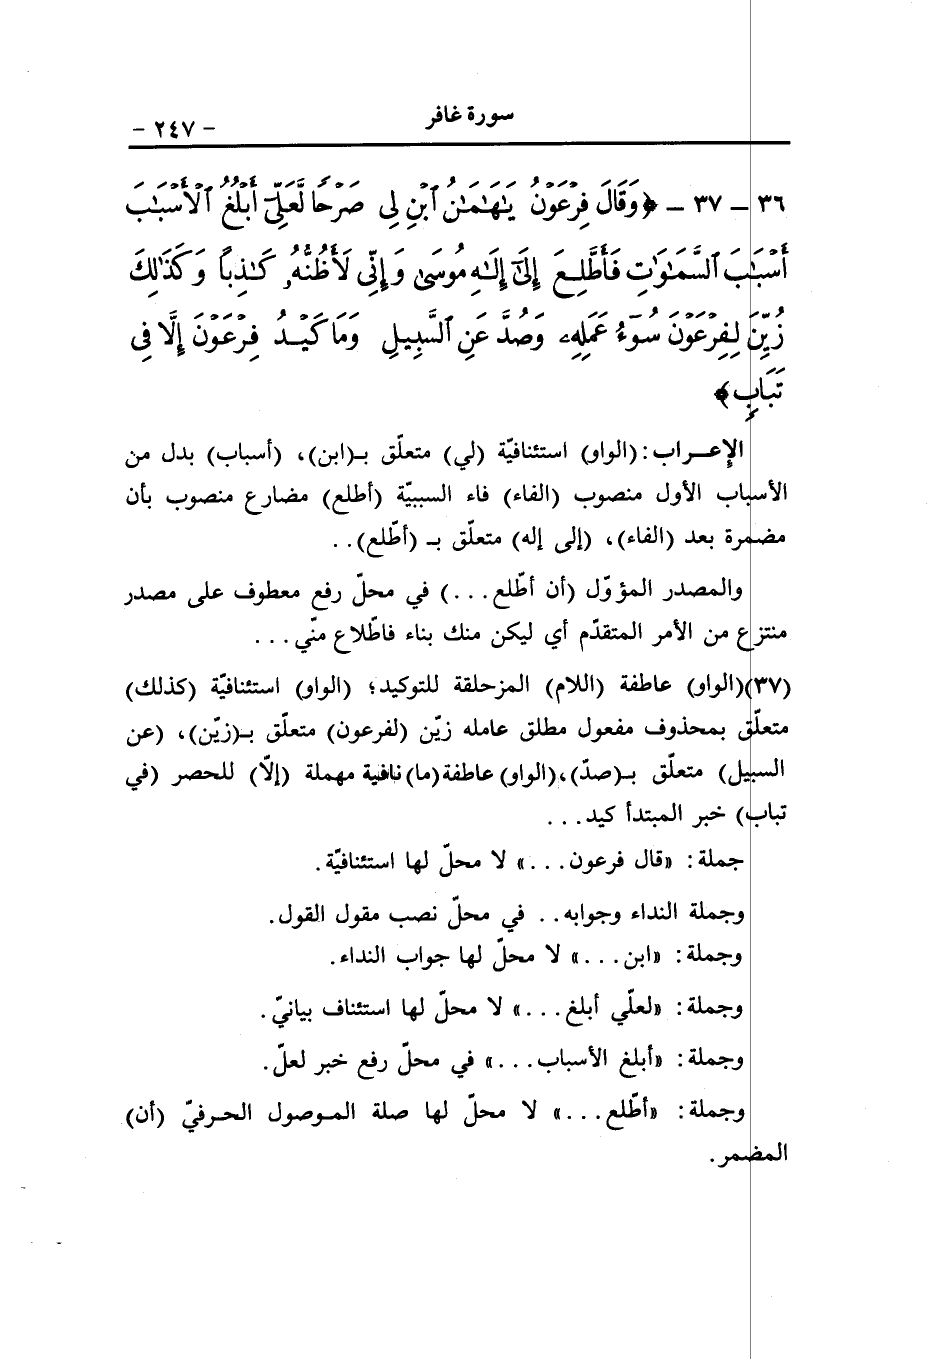 سورة غافر
- ٢٤٧ -
٣٦ - ٣٧ - ﴿وَقَالَ فِرْعَوْنُ يَٰهَٰمَٰنُ ٱبْنِ لِى صَرْحًا لَّعَلِّىٓ أَبْلُغُ ٱلْأَسْبَٰبَ
أَسْبَٰبَ ٱلسَّمَٰوَٰتِ فَأَطَّلِعَ إِلَىٰٓ إِلَٰهِ مُوسَىٰ وَإِنِّى لَأَظُنُّهُۥ كَٰذِبًا وَكَذَٰلِكَ
زُيِّنَ لِفِرْعَوْنَ سُوٓءُ عَمَلِهِۦ وَصُدَّ عَنِ ٱلسَّبِيلِ وَمَا كَيْدُ فِرْعَوْنَ إِلَّا فِى
تَبَابٍ﴾
الإعـراب: (الواو) استئنافيّة (لي) متعلّق بـ(ابن)، (أسباب) بدل من
الأسباب الأول منصوب (الفاء) فاء السببيّة (أطلع) مضارع منصوب بأن
مضمرة بعد (الفاء)، (إلى إله) متعلّق بـ (أطّلع)..
والمصدر المؤوّل (أن أطّلع...) في محلّ رفع معطوف على مصدر
منتزع من الأمر المتقدّم أي ليكن منك بناء فاطّلاع منّي...
(٣٧)(الواو) عاطفة (اللام) المزحلقة للتوكيد؛ (الواو) استئنافيّة (كذلك)
متعلّق بمحذوف مفعول مطلق عامله زيّن (لفرعون) متعلّق بـ(زيّن)، (عن
السبيل) متعلّق بـ(صدّ)،(الواو) عاطفة(ما) نافية مهملة (إلّا) للحصر (في
تباب) خبر المبتدأ كيد...
جملة: «قال فرعون...» لا محلّ لها استئنافيّة.
وجملة النداء وجوابه.. في محلّ نصب مقول القول.
وجملة: «ابن...» لا محلّ لها جواب النداء.
وجملة: «لعلّي أبلغ...» لا محلّ لها استئناف بيانيّ.
وجملة: «أبلغ الأسباب...» في محلّ رفع خبر لعلّ.
وجملة: «أطّلع...» لا محلّ لها صلة الموصول الحرفيّ (أن)
المضمر.